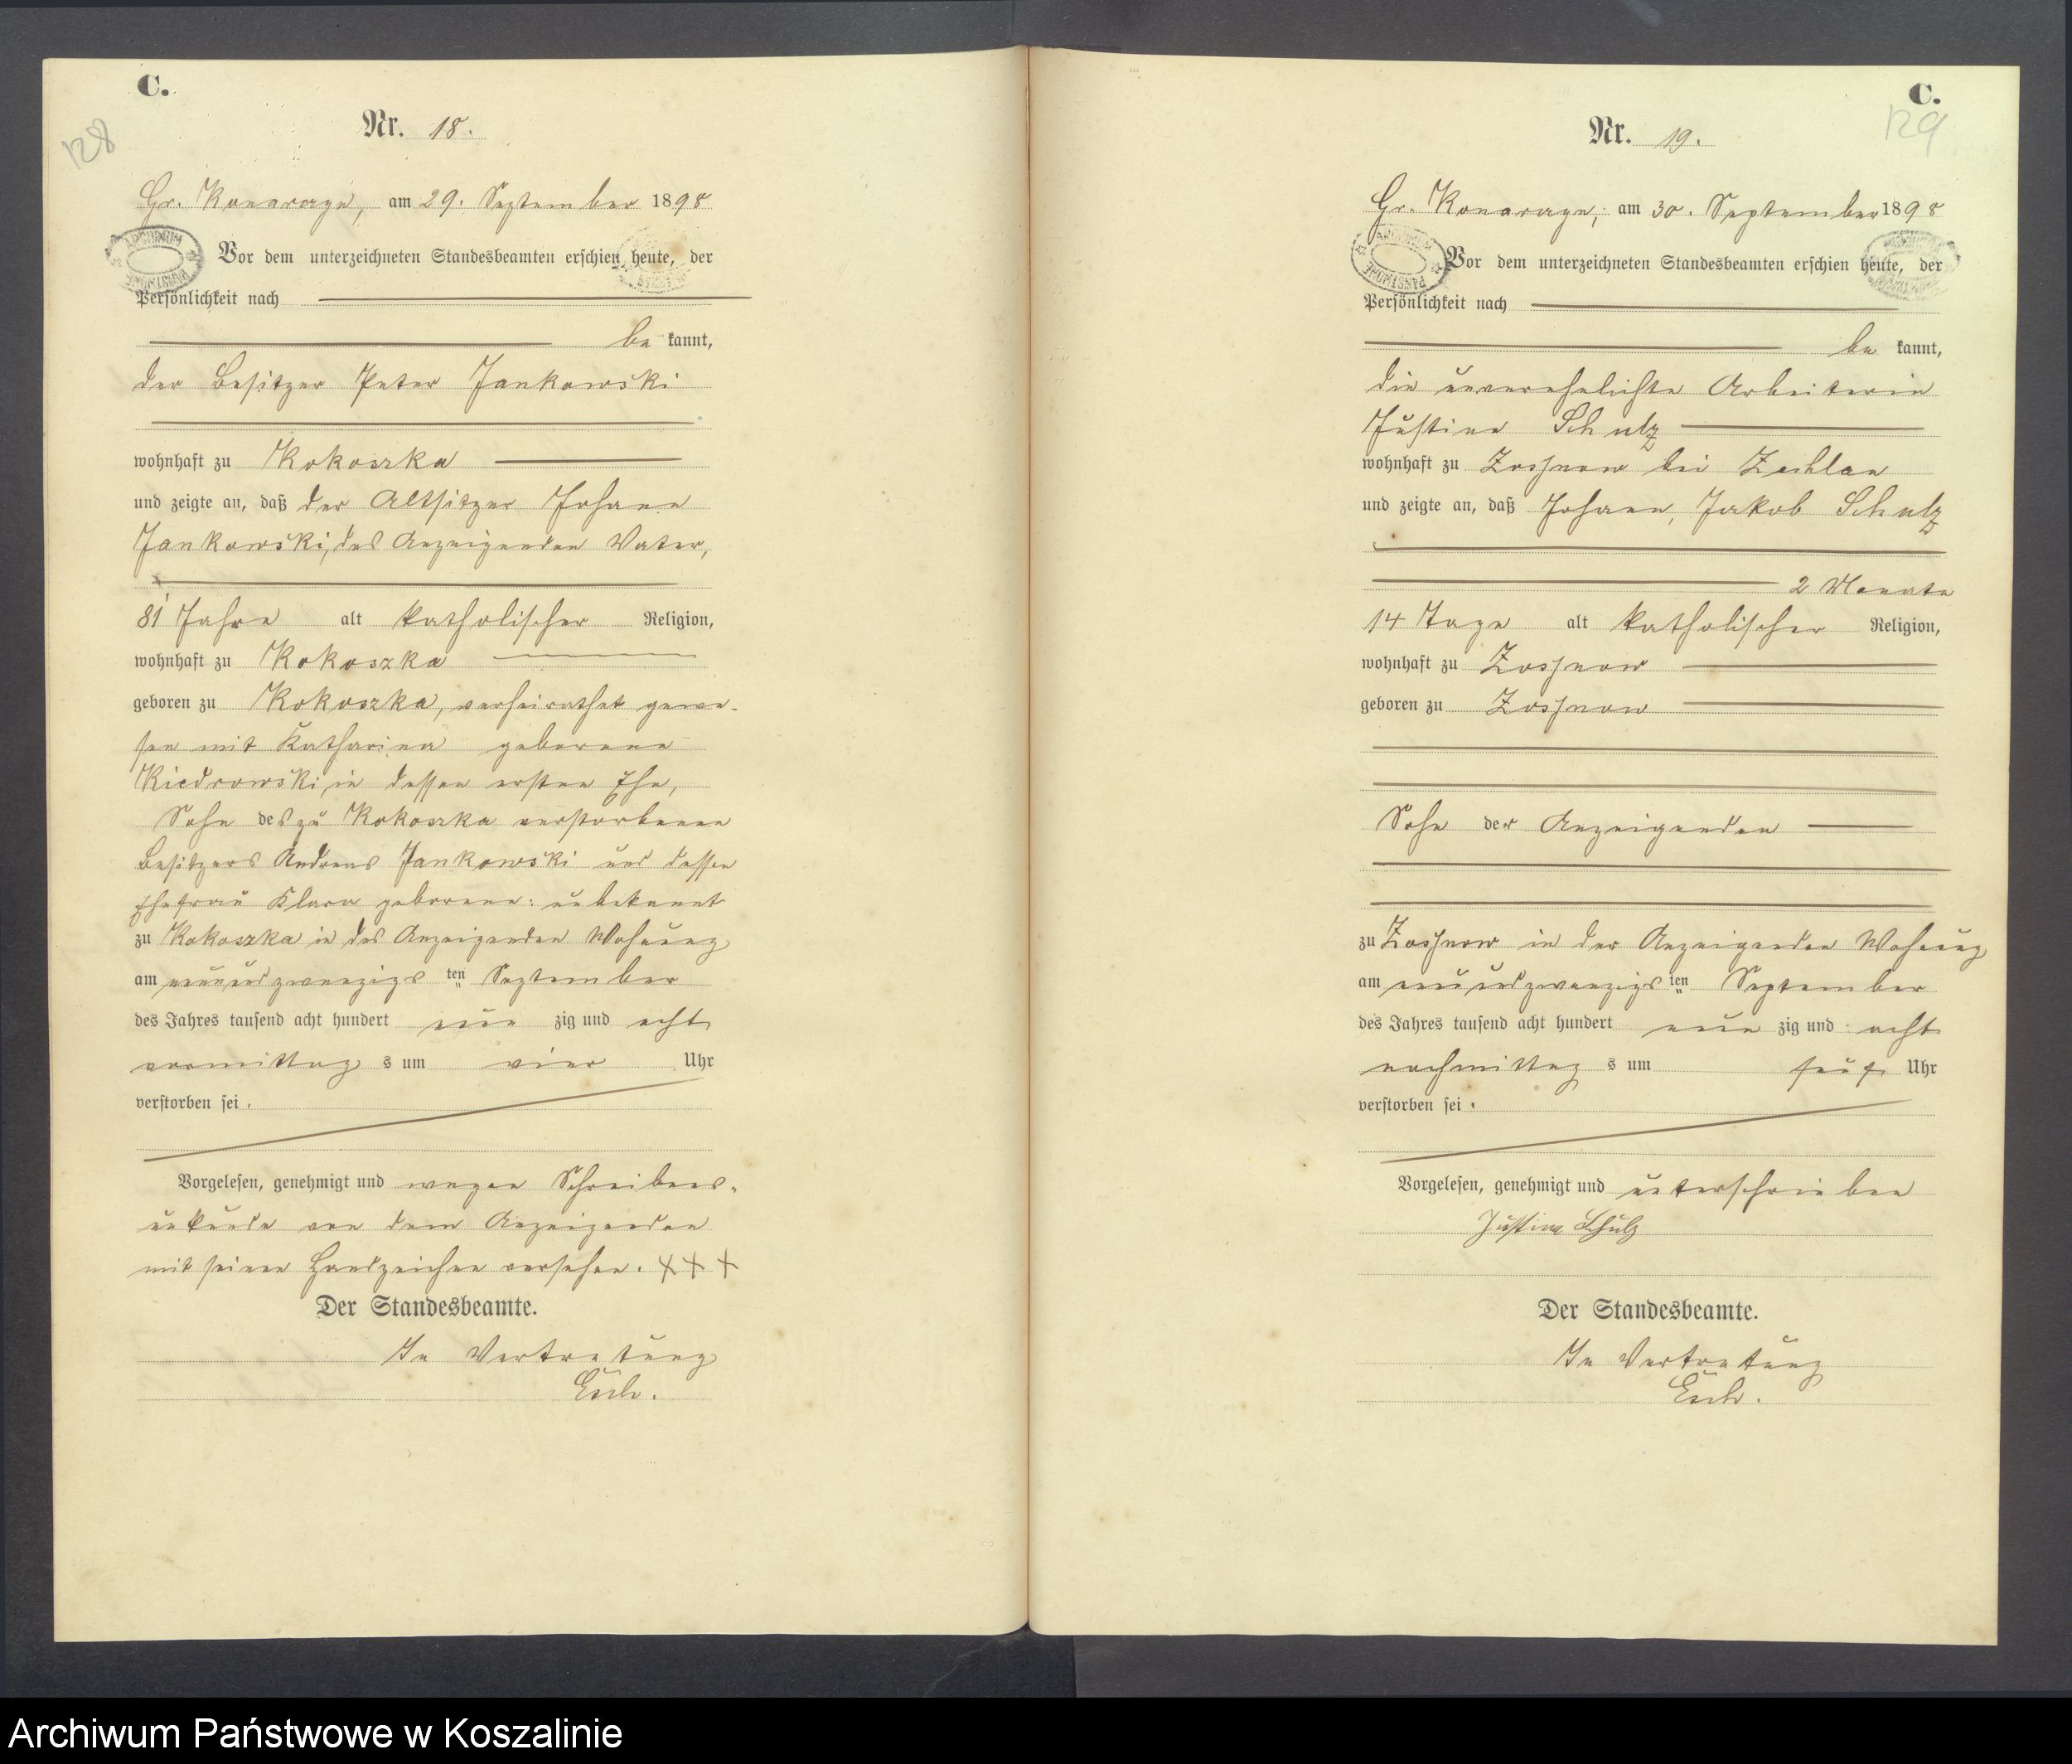 C.
128
Nr. 18.
Gr. Konarczyn, am 29. September 1898
Vor dem unterzeichneten Standesbeamten erschien heute, der
Persönlichkeit nach
be kannt,
der Besitzer Peter Jankowski
wohnhaft zu Kokoszka
und zeigte an, daß der Altsitzer Johann
Jankowski, des Anzeigenden Vater,
81 Jahre alt katholischer Religion,
wohnhaft zu Kokoszka
geboren zu Kokoszka, verheirathet gewe-
sen mit Katharina geborene
Kiedrowski, in dessen ersten Ehe,
Sohn des zu Kokoszka verstorbenen
Besitzers Andreas Jankowski und dessen
Ehefrau Klara geborene: unbekannt
zu Kokoszka in des Anzeigenden Wohnung
am neunundzwanzigs ten September
des Jahres tausend acht hundert neun zig und acht
vormittag s um vier Uhr
verstorben sei.
Vorgelesen, genehmigt und wegen Schreibens-
unkunde von dem Anzeigenden
mit seinen Handzeichen versehen. +++
Der Standesbeamte.
In Vertretung
C.
129
Nr. 19.
Gr. Konarczyn, am 30. September 1898
Vor dem unterzeichneten Standesbeamten erschien heute, der
Persönlichkeit nach
be kannt,
die unverehelichte Arbeiterin
Justine Schulz
wohnhaft zu Zosznow bei Zechlau
und zeigte an, daß Johann, Jakob Schulz
2 Monate
14 Tage alt katholischer Religion,
wohnhaft zu Zosznow
geboren zu Zosznow
Sohn der Anzeigenden
zu Zosznow in der Anzeigenden Wohnung
am neunundzwanzigs ten September
des Jahres tausend acht hundert neun zig und acht
nachmittag s um fünf Uhr
verstorben sei.
Vorgelesen, genehmigt und unterschrieben
Justine Schulz
Der Standesbeamte.
In Vertretung
Archiwum Państwowe w Koszalinie